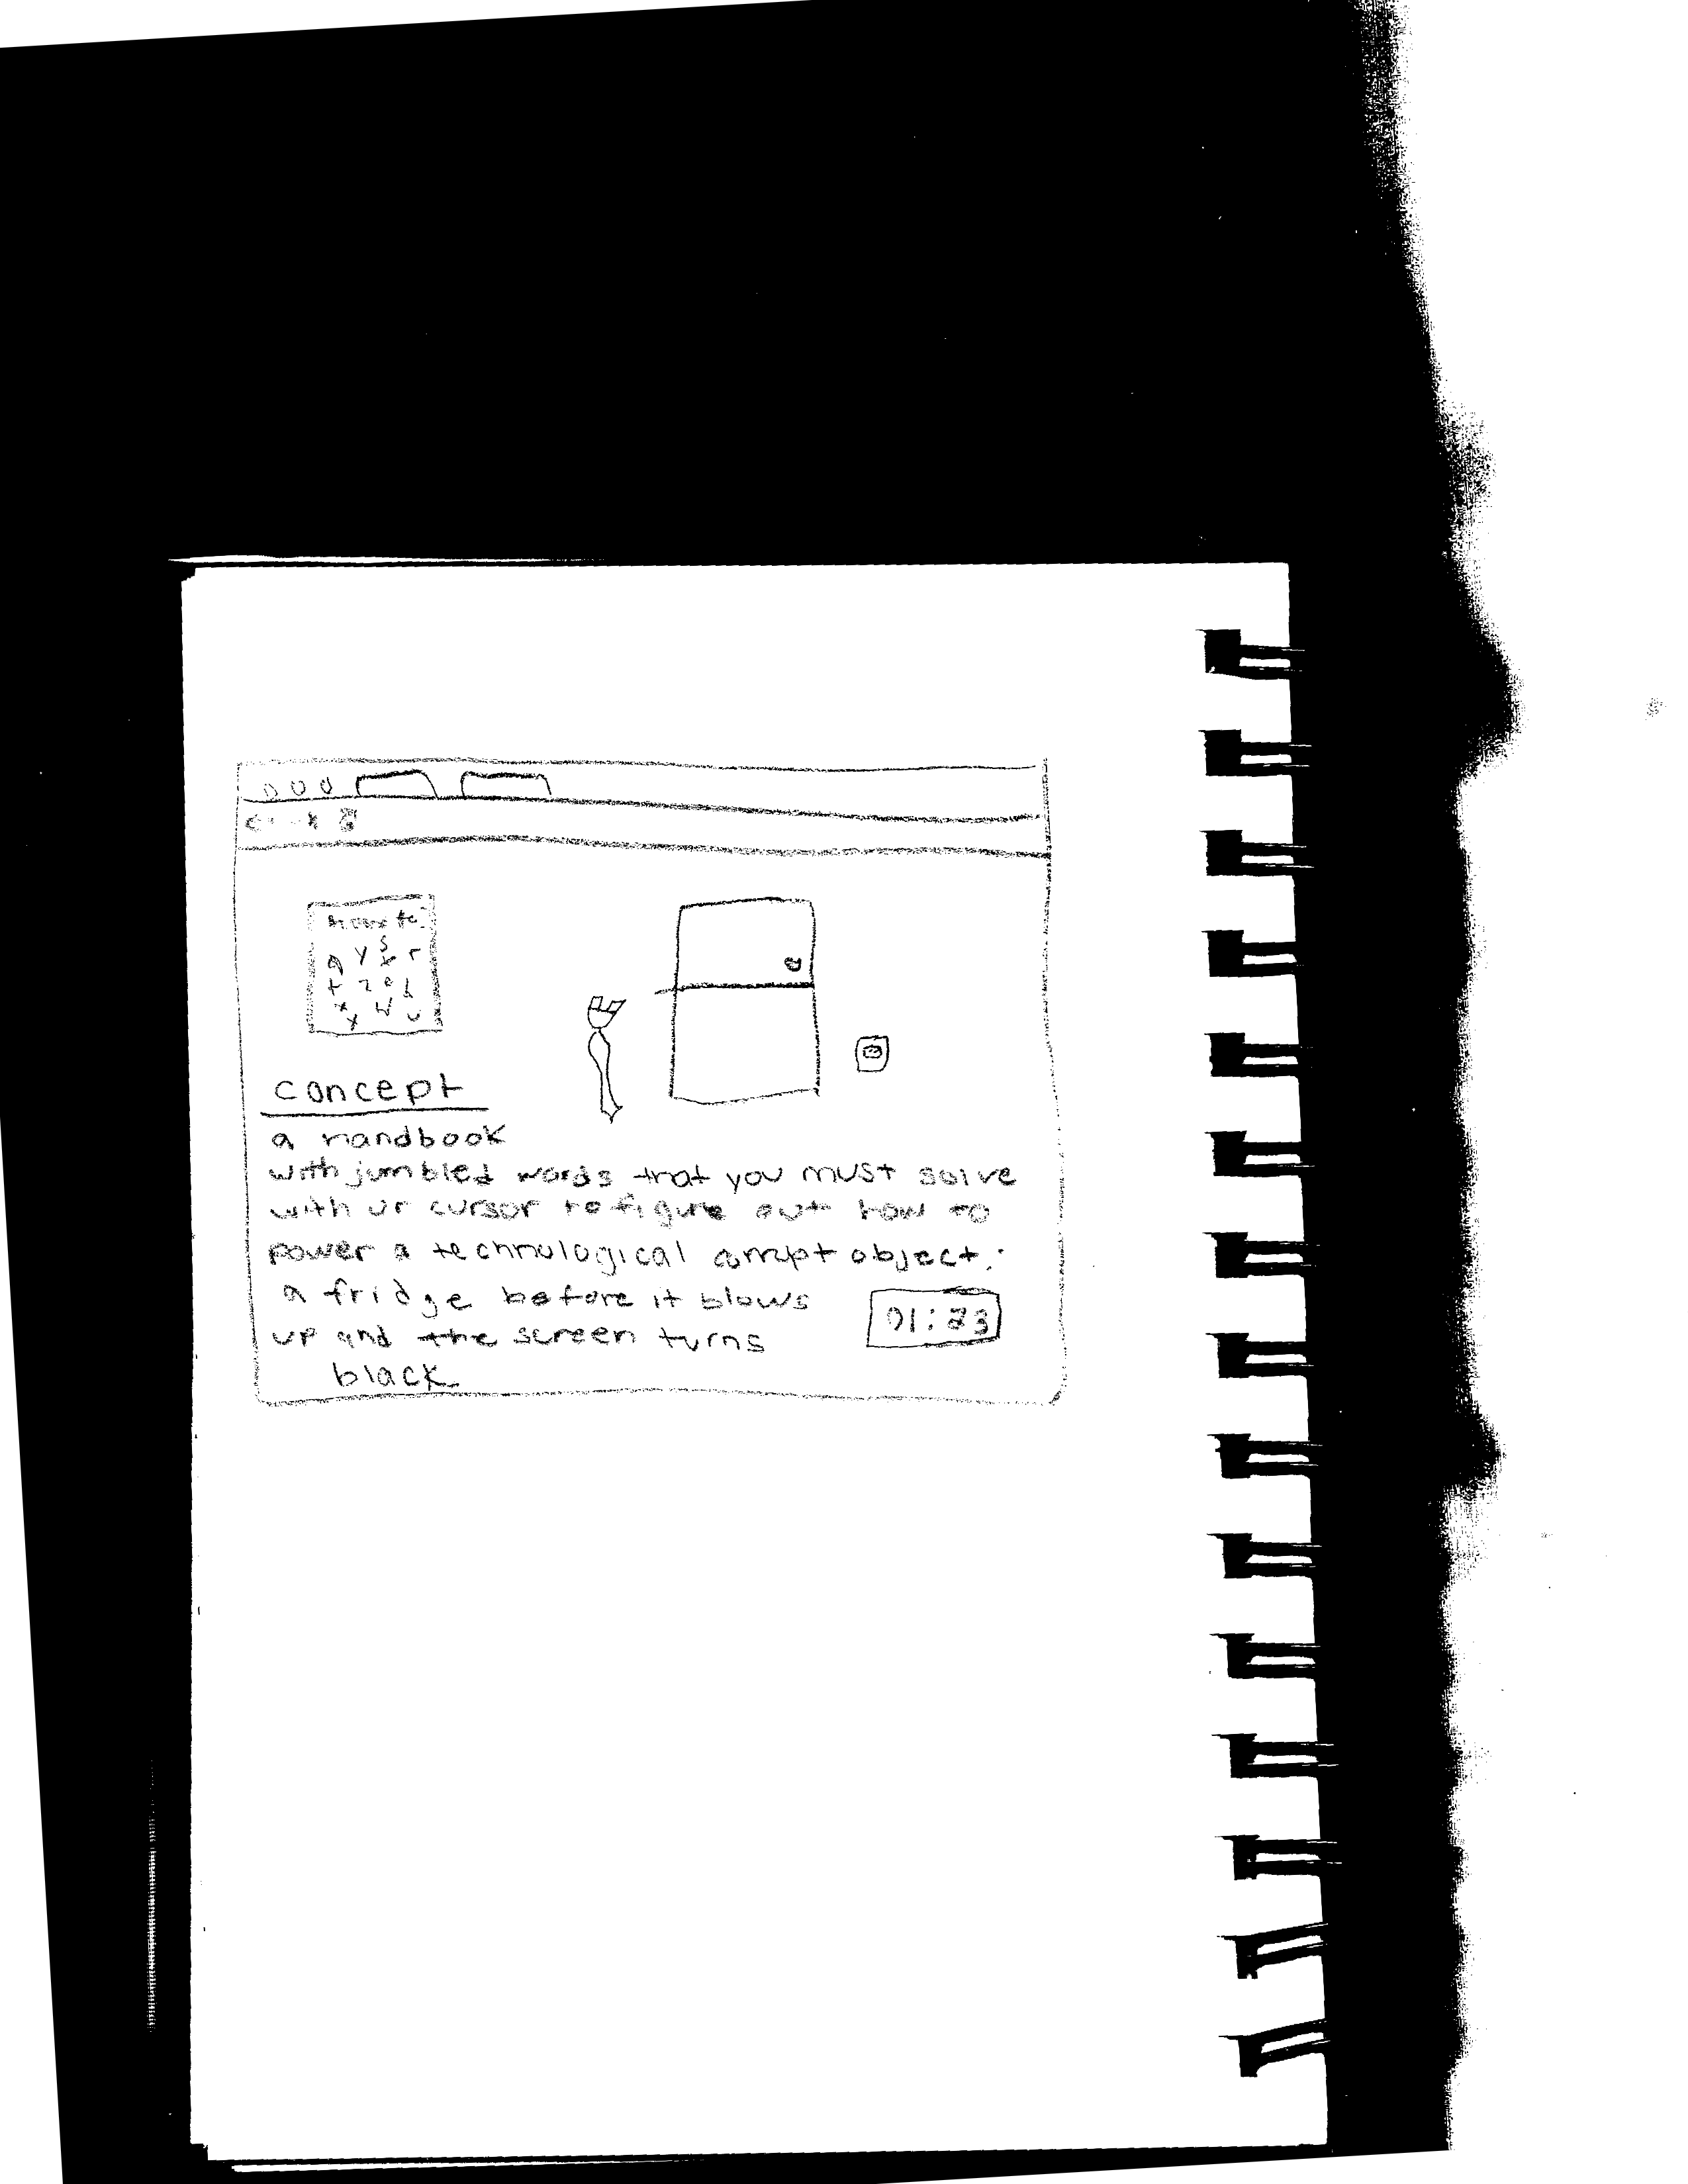 a y s x r
t z e b
x w u
x
concept
a handbook
with jumbled words that you must solve
with ur cursor to figure out how to
power a technological corrupt object.
a fridge before it blows
up and the screen turns
black
01:23